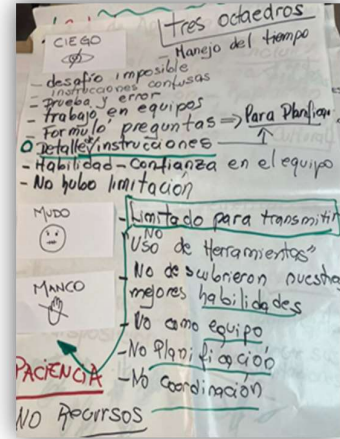 tres octaedros
CIEGO
- Manejo del tiempo
- desafío imposible
- instrucciones confusas
- Prueba y error
- trabajo en equipos
- Formuló preguntas => Para Planificar
Detalle instrucciones
- Habilidad - Confianza en el equipo
- No hubo limitación
MUDO
- Limitado para transmitir
"NO
USO de Herramientas"
- No descubrieron nuestra
mejores habilidades
MANCO
- Vo como equipo
- No Planificación
PACIENCIA
- No coordinación
NO Recursos